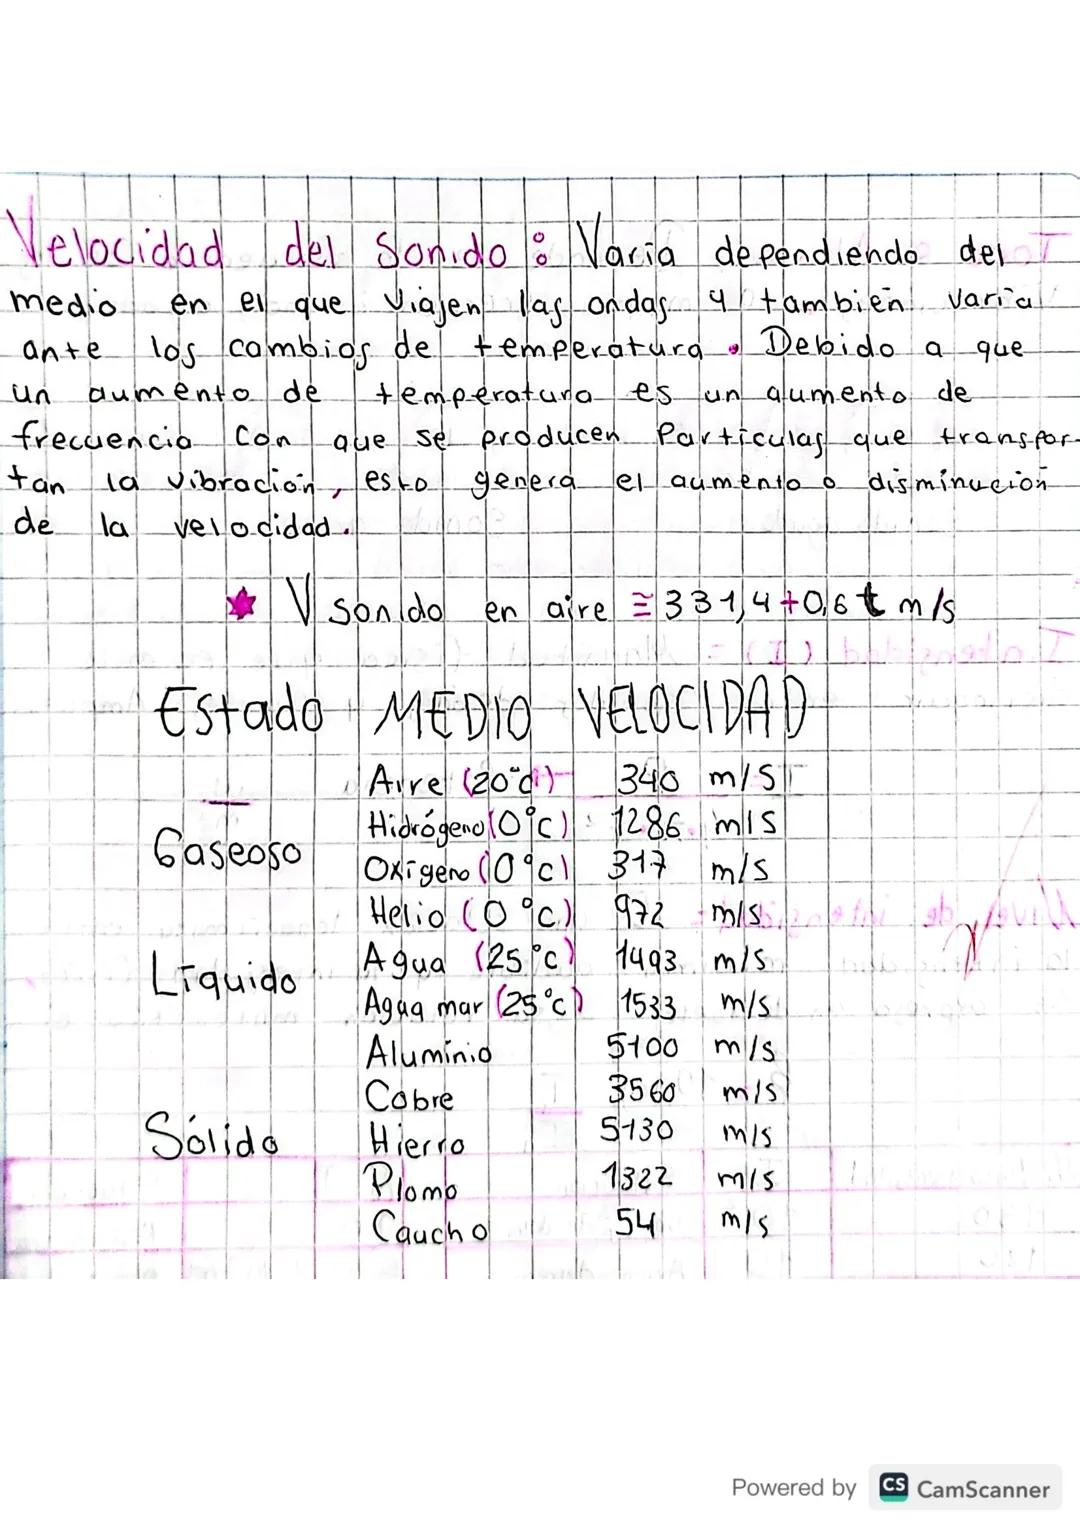 Velocidad del Sonido: Varía dependiendo del
medio en el que viajen las ondas y también varía
ante los cambios de temperatura. Debido a que
un aumento de temperatura es un aumento de
frecuencia con que se producen Partículas que transpor-
tan la vibración, esto genera el aumento o disminución
de la velocidad.
V sonido en aire ≅ 331,4+0,6t m/s
Estado MEDIO VELOCIDAD
Aire (20°c) 340 m/s
Hidrógeno (0°c) 1286 m/s
Gaseoso
Oxígeno (0°c) 317 m/s
Helio (0°c) 972 m/s
Agua (25°c) 1493 m/s
Líquido
Agua mar (25°c) 1533 m/s
Aluminio 5100 m/s
Cobre 3560 m/s
Sólido Hierro 5130 m/s
Plomo 1322 m/s
Caucho 54 m/s
Powered by CS CamScanner